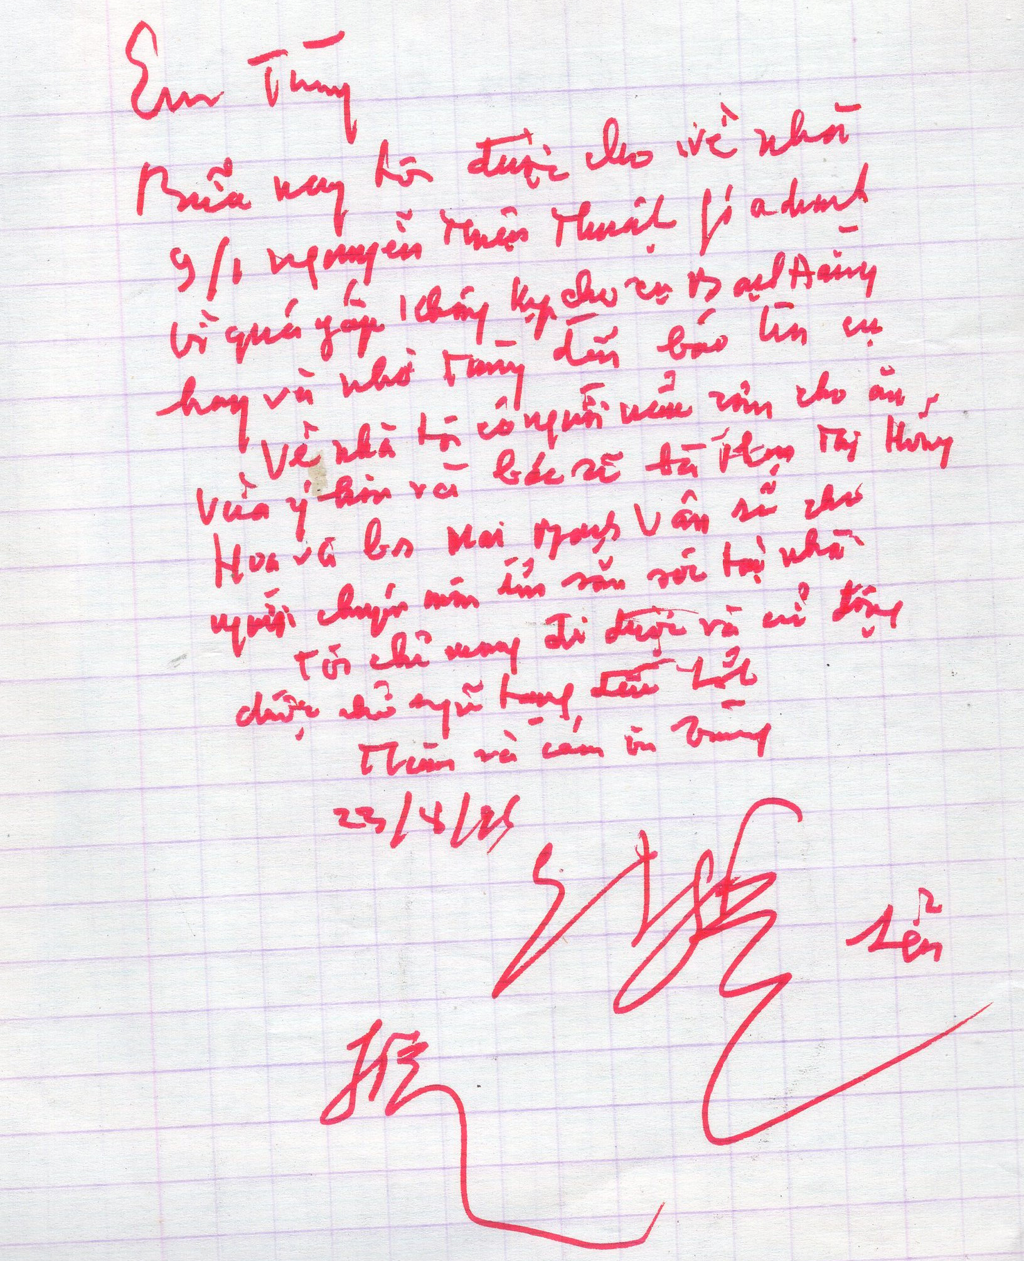 Em Tùng
Bữa nay tôi được cho về nhà
9/1 Nguyễn Thiện Thuật gia đình
Vì quá gấp không kịp cho cụ Bạch Hằng
hay và nhờ Tùng đến báo tin cụ
Về nhà tôi có người nấu cho ăn
vừa ý hơn và bác sĩ bà Hồng
Hoa và bs Mai Vân sẽ cho
người chuyên môn đến săn sóc tại nhà
Tôi chỉ mong đi được và cử động
được chứ ngũ tạng đều tốt
Thăm và cám ơn Tùng
23/8/